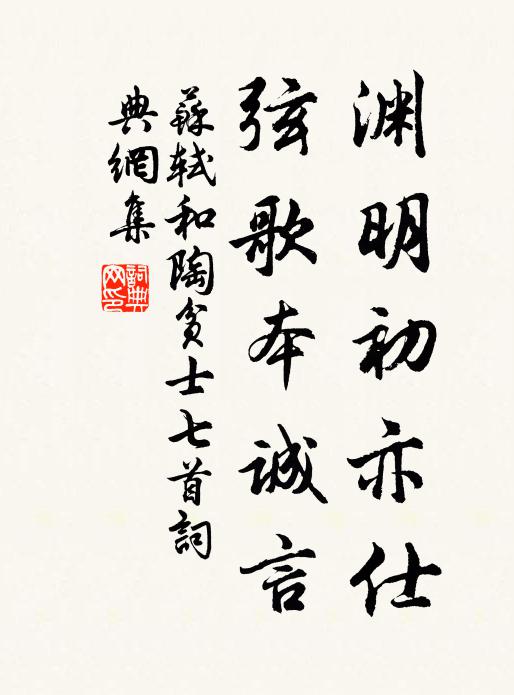 渊明初亦仕
弦歌本诚言
蘇軾和陶貧士七首詞
典網集
詞典网印